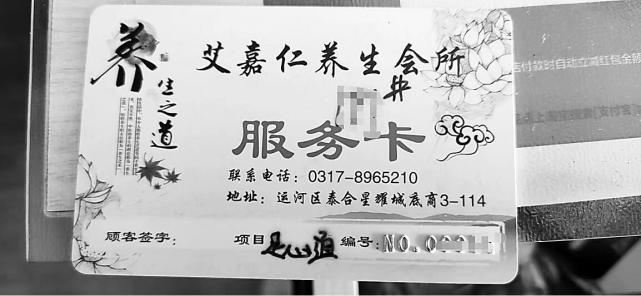 养
生之道
艾嘉仁养生会所
服务卡
联系电话：0317-8965210
地址：运河区泰合星耀城底商3-114
顾客签字：
项目
编号：NO.0
付款时自动立减红包金额